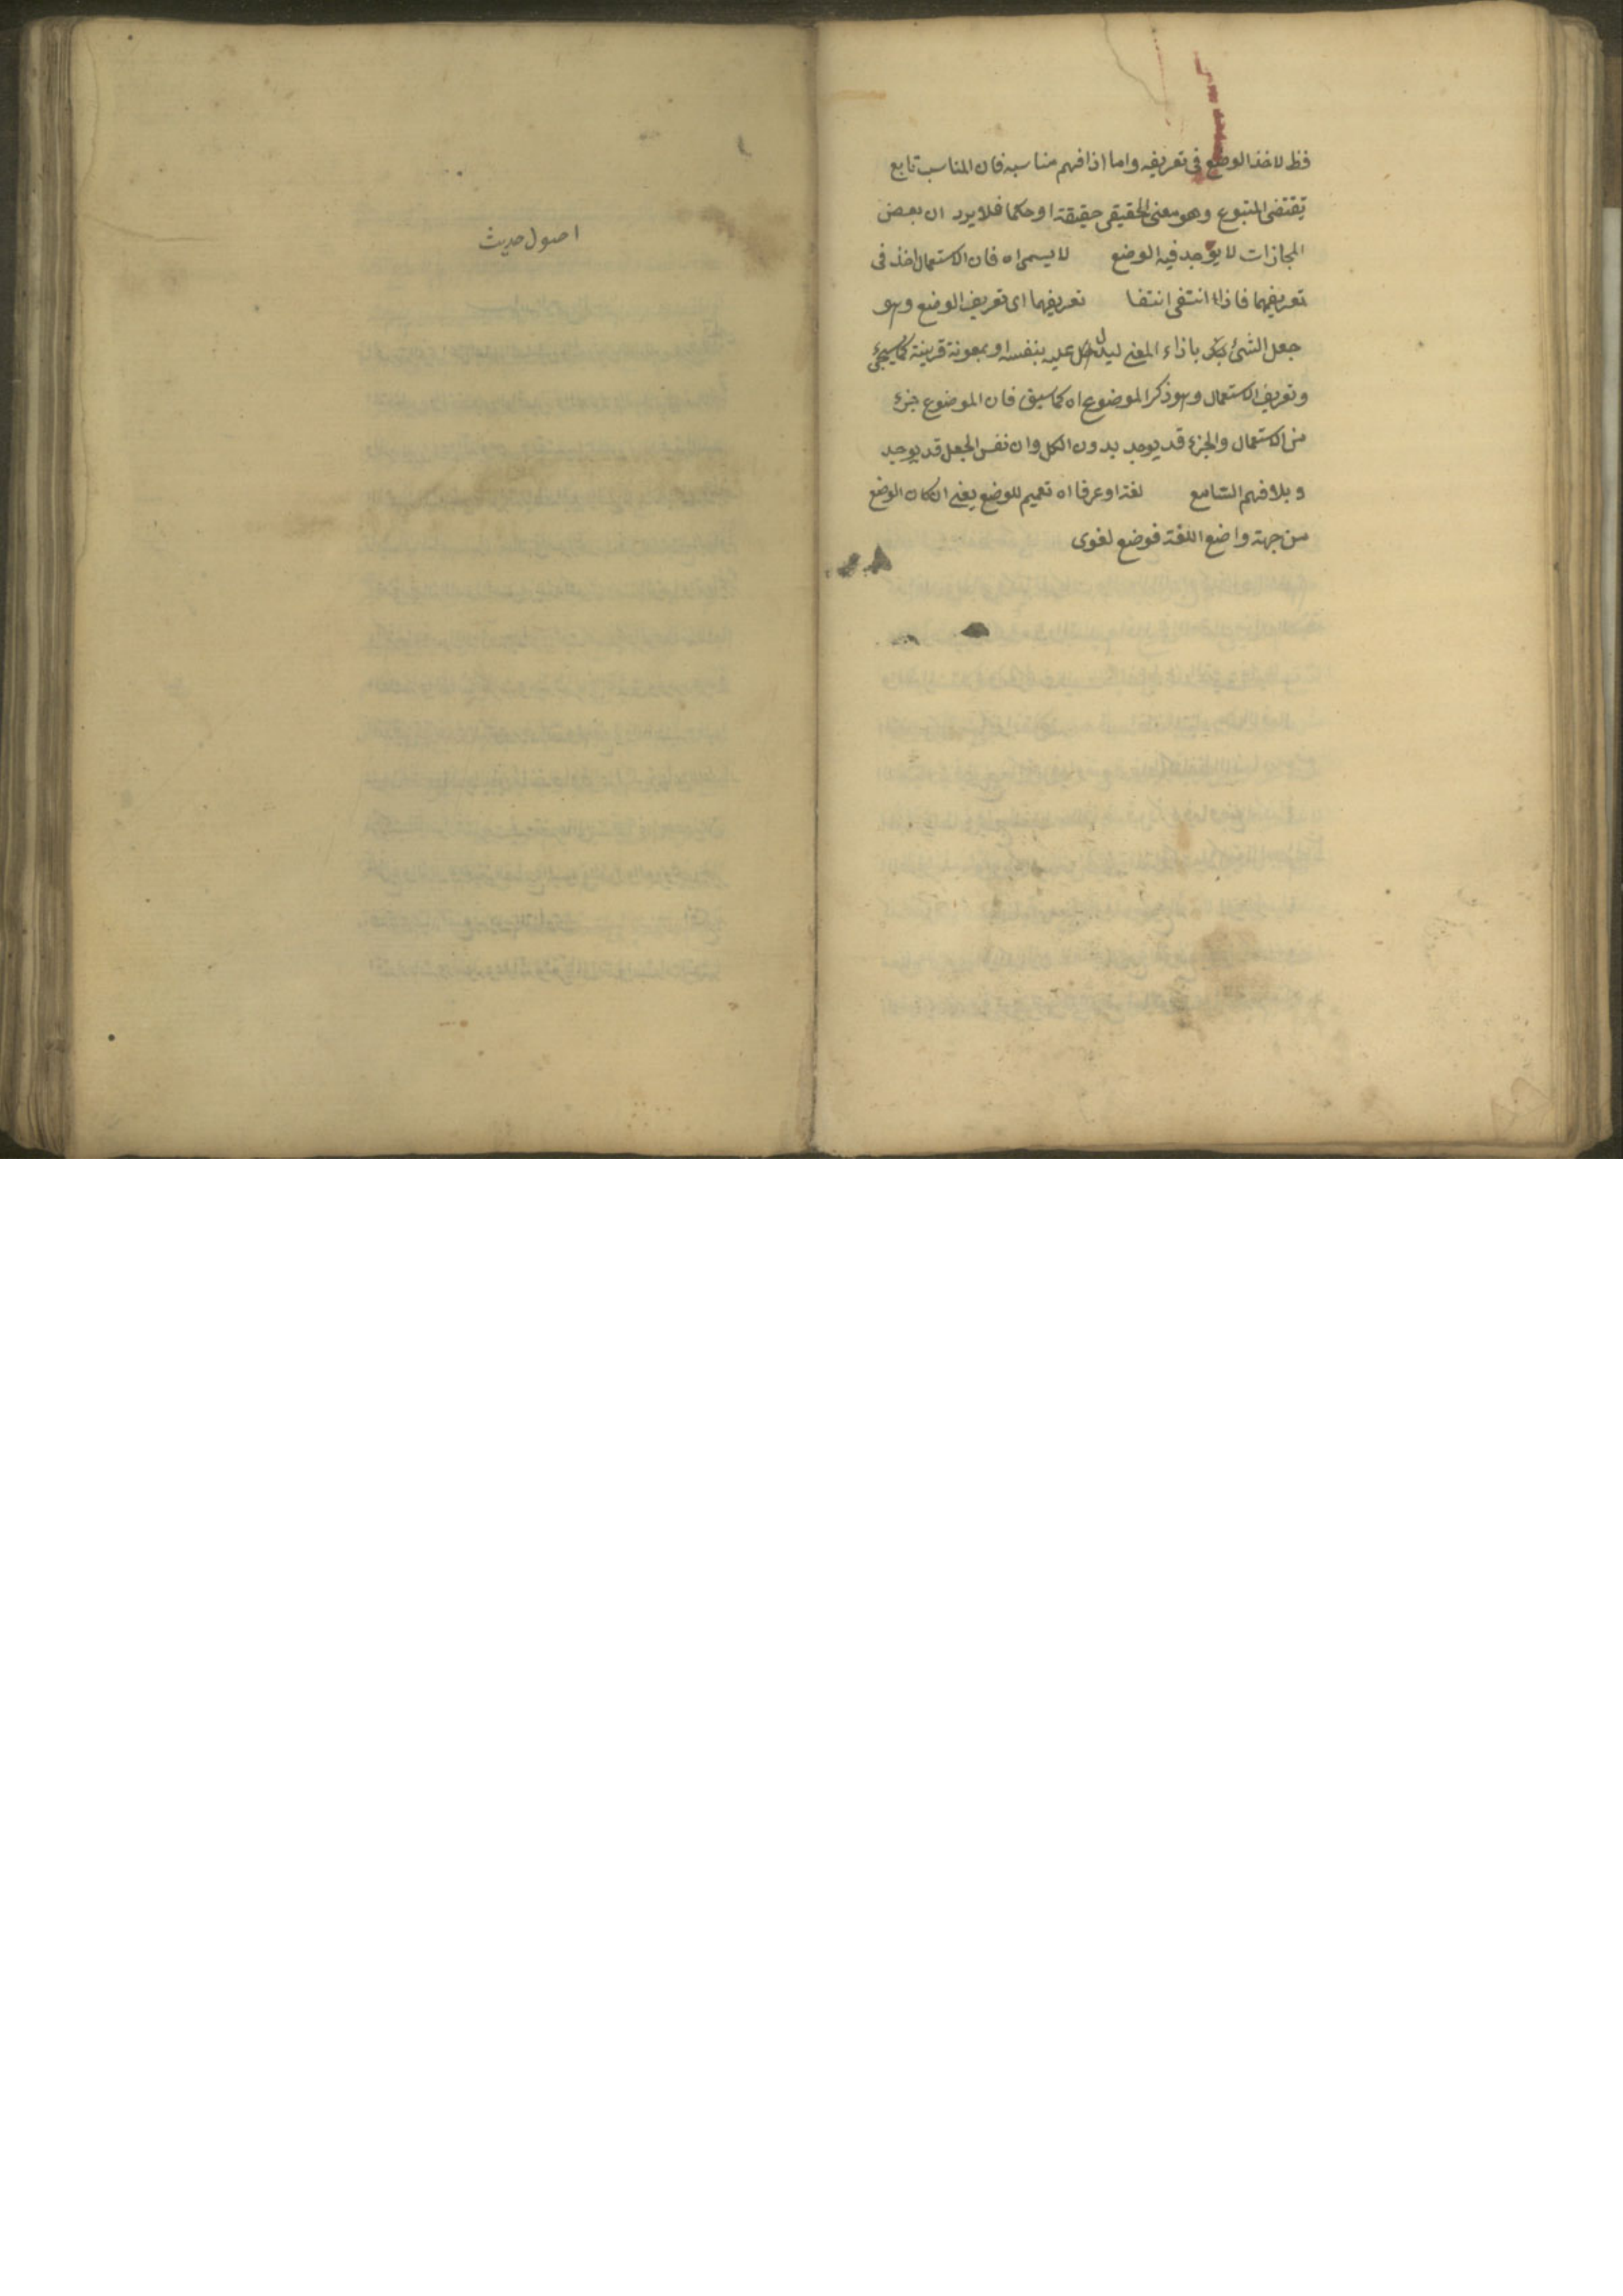 فظ لاخذ الوضع فى تعريفه واما اذا فهم مناسبه فان المناسب تابع
يقتضى المتبوع وهو معنى الحقيقى حقيقة او حكما فلا يرد ان بعض
المجازات لا يوجد فيه الوضع لا يسمى اه فان الاستعمال اخذ فى
تعريفهما فاذا انتفى انتفا تعريفهما اى تعريف الوضع وهو
جعل الشئ باذاء المعنى ليدل عليه بنفسه او بمعونة قرينة كما سيجئ
وتعريف الاستعمال وهو ذكر الموضوع اه كما سبق فان الموضوع جزء
من الاستعمال والجزء قد يوجد بدون الكل وان نفس الجعل قد يوجد
وبلا فهم السامع لغة او عرفا اه تعميم للوضع يعنى ان كان الوضع
من جهة واضع اللغة فوضع لغوى
اصول حديث